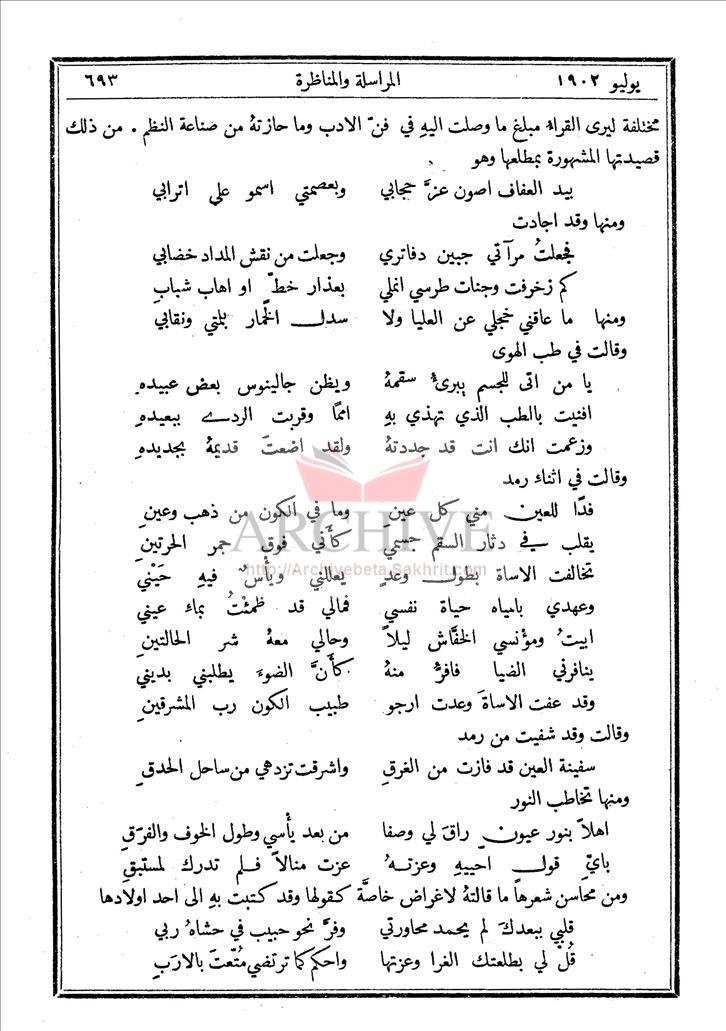 يوليو ١٩٠٢ المراسلة والمناظرة ٦٩٣
مختلفة ليرى القراء مبلغ ما وصلت اليهِ في فنّ الادب وما حازتهُ من صناعة النظم . من ذلك
قصيدتها المشهورة بمطلعها وهو
بيد العفاف اصون عزَّ حجابي وبعصمتي اسمو على اترابي
ومنها وقد اجادت
فجعلتُ مرآتي جبين دفاتري وجعلت من نقش المداد خضابي
كم زخرفت وجنات طرسي انملي بعذار خطّ او اهاب شبابِ
ومنها ما عاقني خجلي عن العليا ولا سدل الخمار بلمتي ونقابي
وقالت في طب الهوى
يا من اتى للجسم يبرئُ سقمهُ ويظن جالينوس بعض عبيدهِ
افنيت بالطب الذي تهذي بهِ امماً وقربت الردى ببعيدهِ
وزعمت انك انت قد جددتهُ ولقد اضعتَ قديمهُ بجديدهِ
وقالت في اثناء رمد
فدًا للعين مني كل عين وما في الكون من ذهب وعينِ
يقلب في دثار السقم جسمي كأني فوق جمر الحرتينِ
تخالفت الاساة بطول وعدٍ يعالني ويأسٌ فيهِ حَيْني
وعهدي بامياه حياة نفسي فمالي قد ظمئْتُ بماء عيني
ابيتُ ومؤنسي الخفَّاش ليلاً وحالي معهُ شر الحالتينِ
ينافرني الضيا فافرُّ منهُ كأَنَّ الضوءَ يطلبني بديني
وقد عفت الاساةَ وعدت ارجو طبيب الكون رب المشرقينِ
وقالت وقد شفيت من رمد
سفينة العين قد فازت من الغرقِ واشرقت تزدهي من ساحل الحدقِ
ومنها تخاطب النور
اهلاً بنور عيونٍ راقَ لي وصفا من بعد يأسي وطول الخوف والفرَقِ
بايّ قول احييهِ وعزتهُ عزت منالاً فلم تدرك لمستبقِ
ومن محاسن شعرها ما قالتهُ لاغراض خاصَّة كقولها وقد كتبت بهِ الى احد اولادها
قلبي ببعدكَ لم يحمد محاورتي وفرَّ نحو حبيب في حشاهُ ربي
قُلْ لي بطلعتك الغرا وعزتها واحكم كما ترتضي مُتّعتَ بالاربِ
ARCHIVE
http://Archivebeta.Sakhrit.com